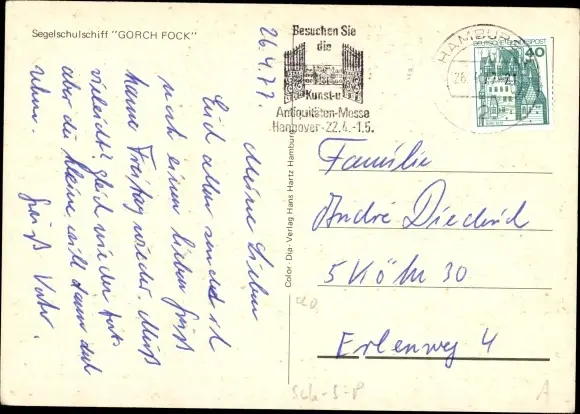 Segelschulschiff "GORCH FOCK"
26.4.77.
Meine Lieben
Euch allen sendet ich
noch einen lieben Gruß
komme Freitag wieder. Muß
vielleicht gleich wieder fort
aber die kleine will dann auch
ruhen.
Gruß Vater.
Color-Dia-Verlag Hans Hartz Hamburg
Besuchen Sie
die
Kunst-u.
Antiquitäten-Messe
Hannover-22.4.-1.5.
HAMBURG
DEUTSCHE BUNDESPOST
40
Familie
André Diederich
5 Köln 30
Erlenweg 4
Sch-S-P
A